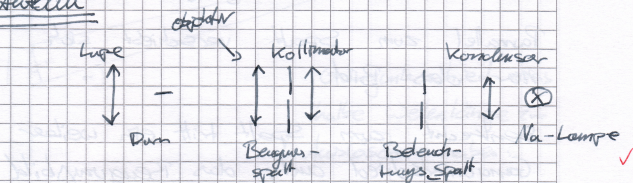 Objektiv
Lupe
Kollimator
Kondensor
Dorn
Beugungs-
spalt
Beleuch-
tungsspalt
Na-Lampe